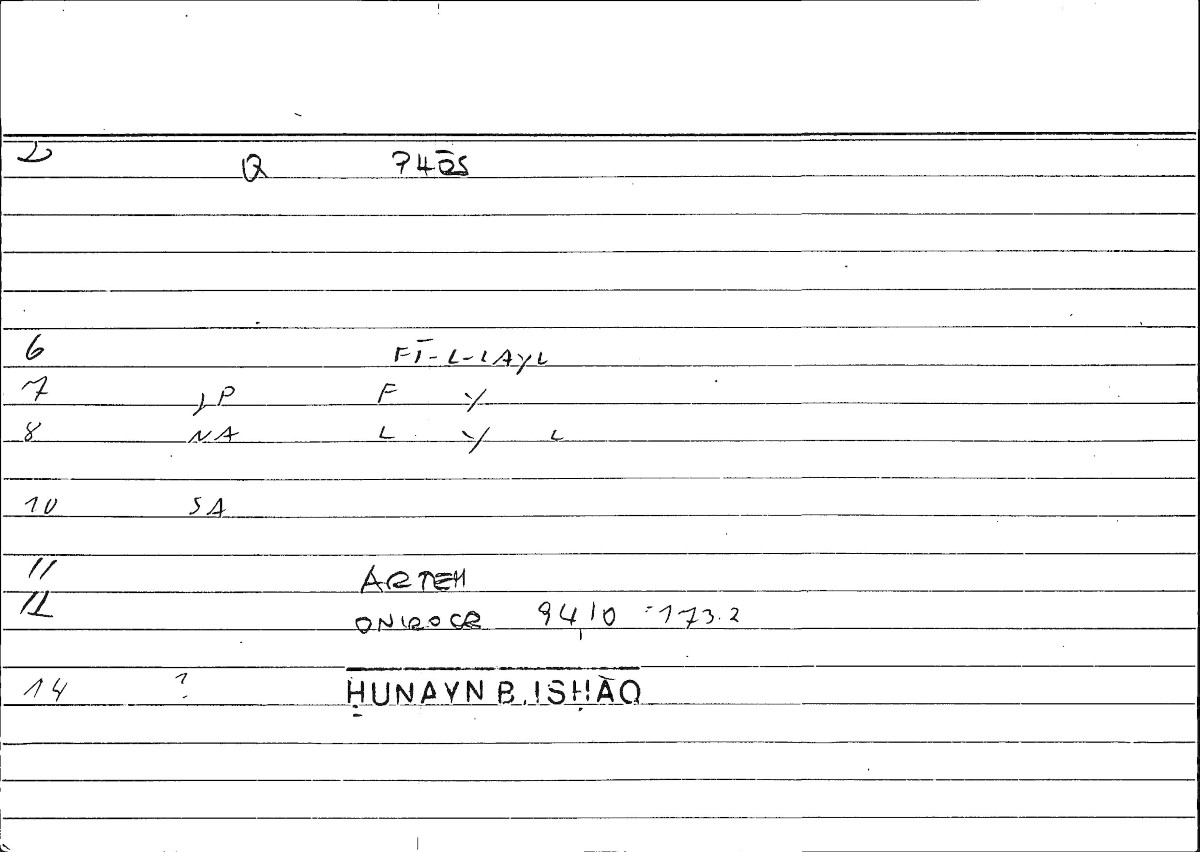 2 Q
6 FĪ-L-LAYL
7 JP F Y
8 NA L Y L
10 SA
11 ARTEM
12 ONIROCR 94,10 -173.2
14 ? ḤUNAYN B. ISḤĀQ